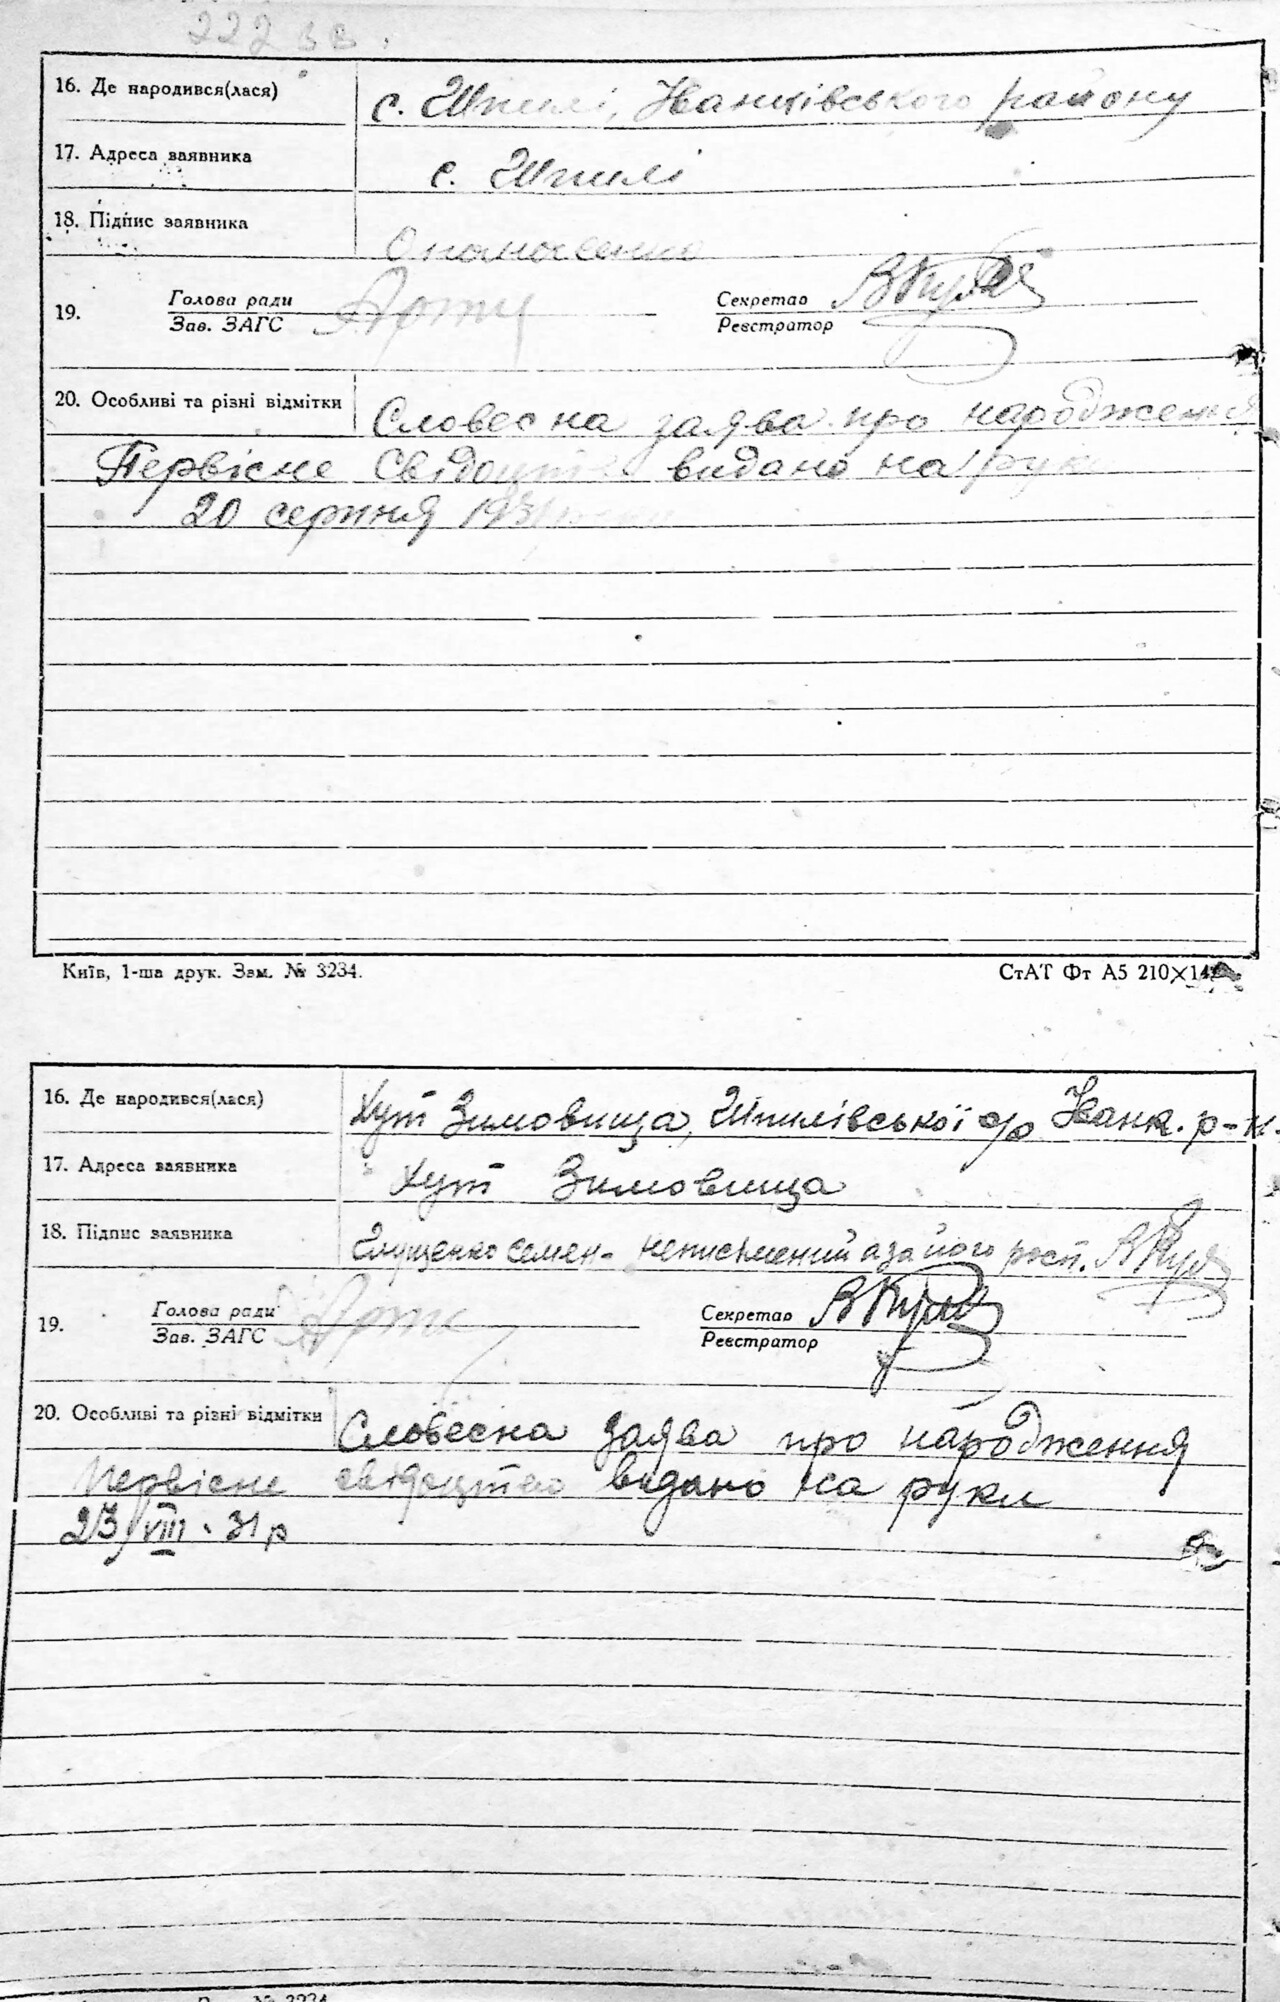 222 зв.
16. Де народився(лася) с. Шпилі, Іванківського району
17. Адреса заявника с. Шпилі
18. Підпис заявника Опанасенко
19. Голова ради Секретар
Зав. ЗАГС Реєстратор
20. Особливі та різні відмітки Словесна заява про народження
Первісне Свідоцтво видано на руки
20 серпня 1931 року
Київ, 1-ша друк. Зам. № 3234. СтАТ Фт А5 210×14
16. Де народився(лася) Хут Зимовища, Шпилівської с/р Іванк. р-н.
17. Адреса заявника Хут Зимовища
18. Підпис заявника Глущенко Семен - неписьмений а за його росп.
19. Голова ради Секретар
Зав. ЗАГС Реєстратор
20. Особливі та різні відмітки Словесна заява про народження
Первісне свідоцтво видано на руки
23/VIII - 31 р
№ 3234